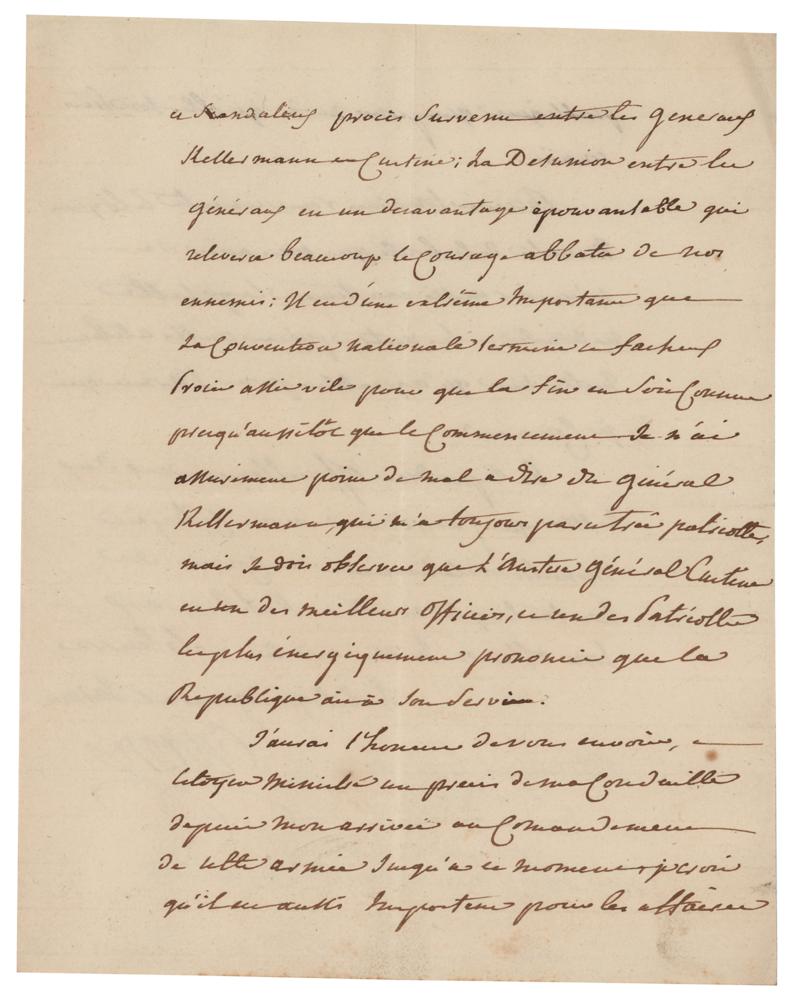 ce Scandaleux procès Survenu entre les généraux
Kellermann et Custine; La Desunion entre les
généraux est un desavantage épouvantable qui
relevera beaucoup le Courage abbatu de nos
ennemis; Il est d'une extrême Importance que
La Convention nationale termine ce facheux
Procès assés vite pour que la fin en Soit Connue
presqu'aussitôt que le Commencement Je n'ai
assurement point de mal a dire du général
Kellermann qui m'a toujours paru très patriotte,
mais Je dois observer que L'Austere général Custine
est un des meilleurs Officiers, et un des Patriottes
les plus énergiquement prononcés que la
Republique ait à Son Service.
J'aurai l'honneur de vous envoier,
Citoyen Ministre un precis de ma Conduitte
depuis mon arrivée au Comandement
de cette armée Jusqu'a ce moment je crois
qu'il est aussi Important pour les affaires